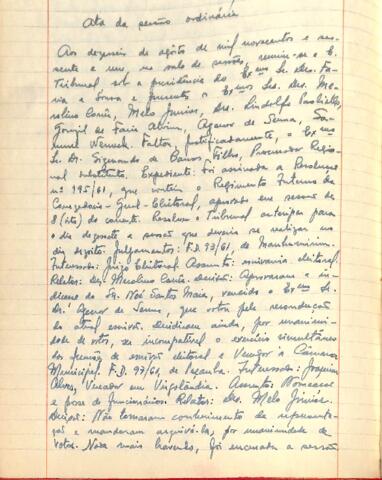 Ata da sessão ordinária
Aos dezesseis de agôsto de mil novecentos e ses-
senta e um, na sala de sessões, reuniu-se o E.
Tribunal sob a presidência do Exmo Sr. Des.
e Sousa e presentes os Exmos Srs. Des.
Melo Junior, Drs. Lindolfo Paoliello,
Gonzil de Faria Alvim, Agenor de Senna,
Werneck. Faltou, justificadamente, o Exmo
Sr. Dr. Sigmundo de Barros Filho, Procurador Regio-
nal substituto. Expediente: foi assinada a Resolução
nº 195/61, que contém o Regimento Interno da
Corregedoria-Geral-Eleitoral, aprovado em sessão de
8 (oito) do corrente. Resolveu o Tribunal antecipar para
o dia dezessete a sessão que deveria se realizar no
dia dezoito. Julgamentos: F.D. 93/61, de Manhumirim.
Interessado: Juízo Eleitoral. Assunto: escrivania eleitoral.
Relator: Des. Decisão: Aprovaram a in-
dicação do Sr. Noé Santos Maia, vencido o Exmo Sr.
Dr. Agenor de Senna, que votou pela recondução
do atual escrivão. Decidiram ainda, por unanimi-
dade de votos, ser incompatível o exercício simultâneo
das funções de escrivão eleitoral e Vereador à Câmara
Municipal. F.D. 97/61, de Peçanha. Interessado: Joaquim
Alves, Vereador em Virgolândia. Assunto: Nomeação
e posse de funcionários. Relator: Des. Melo Júnior.
Decisão: Não tomaram conhecimento da represente-
ção e mandaram arquivá-la, por unanimidade de
votos. Nada mais havendo, foi encerrada a sessão